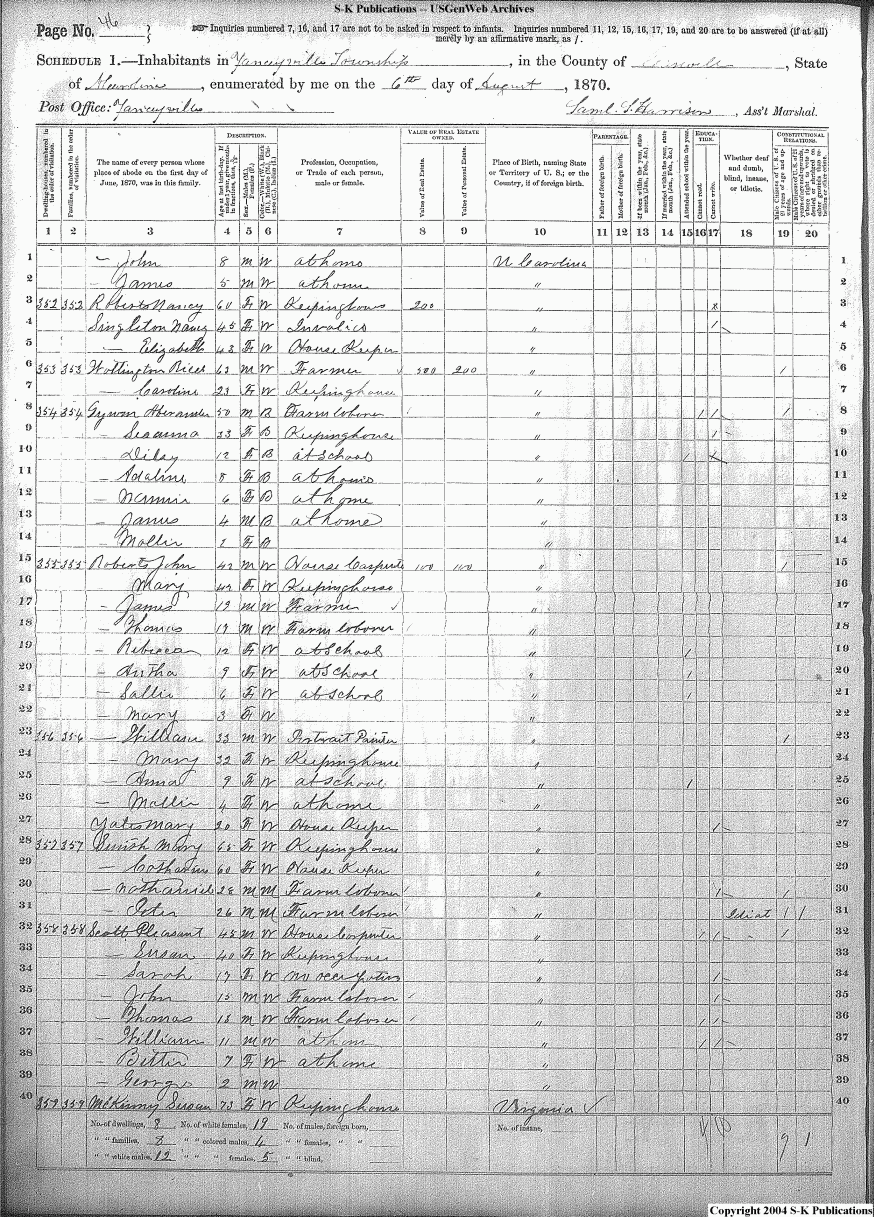 S-K Publications -- USGenWeb Archives
Page No. 46 }
Inquiries numbered 7, 16, and 17 are not to be asked in respect to infants. Inquiries numbered 11, 12, 15, 16, 17, 19, and 20 are to be answered (if at all)
merely by an affirmative mark, as /.
SCHEDULE 1.—Inhabitants in Yanceyville Township, in the County of , State
of , enumerated by me on the 6th day of August, 1870.
Post Office: Yanceyville
Saml. S. Harrison, Ass't Marshal.
DESCRIPTION. VALUE OF REAL ESTATE OWNED. PARENTAGE. EDUCATION. CONSTITUTIONAL RELATIONS.
Dwelling-houses, numbered in the order of visitation.
Families, numbered in the order of visitation.
The name of every person whose place of abode on the first day of June, 1870, was in this family.
Profession, Occupation, or Trade of each person, male or female.
Value of Real Estate.
Value of Personal Estate.
Place of Birth, naming State or Territory of U. S.; or the Country, if of foreign birth.
Father of foreign birth.
Mother of foreign birth.
Attended school within the year.
Cannot read.
Cannot write.
Whether deaf and dumb, blind, insane, or idiotic.
1 2 3 4 5 6 7 8 9 10 11 12 13 14 15 16 17 18 19 20
1 – John 8 M W at home N Carolina 1
2 – James 5 M W at home " 2
3 352 352 Roberts Nancy 60 F W Keeping house 200 " 3
4 Singleton Nancy 45 F W " / 4
5 – Elizabeth 43 F W House Keeper " 5
6 353 353 63 M W Farmer 500 200 " / 6
7 – Caroline 23 F W Keeping house " 7
8 354 354 50 M B Farm laborer " / / / 8
9 – 33 F B Keeping house " / 9
10 – Dilsy 12 F B at School " / 10
11 – Adaline 8 F B at home " 11
12 – 6 F B at home " 12
13 – James 4 M B at home " 13
14 – Mollie F " 14
15 355 355 Roberts John 42 M W House Carpenter 100 100 " / 15
16 Mary 42 F W Keeping house " 16
17 – James 19 M W Farmer " 17
18 – Thomas 17 M W Farm laborer " 18
19 – Rebecca 12 F W at School " / 19
20 – 9 F W at School " / 20
21 – Sallie 6 F W at School " / 21
22 – Mary 3 F W 22
23 356 356 – William 33 M W Portrait Painter " / 23
24 – Mary 32 F W Keeping house " 24
25 – Anna 9 F W at School " / 25
26 – Mollie 4 F W at home " 26
27 Yates Mary 20 F W House Keeper " / 27
28 357 357 Mary 65 F W Keeping house " 28
29 – 60 F W House Keeper " 29
30 – Nathaniel 28 M M Farm laborer " / / 30
31 – Peter 26 M M Farm laborer " Idiot / / 31
32 358 358 Scott Pleasant 45 M W House Carpenter " / / / 32
33 – Susan 40 F W Keeping house " 33
34 – Sarah 17 F W no occupation " / 34
35 – John 15 M W Farm laborer " / 35
36 – Thomas 13 M W Farm laborer " / / 36
37 – William 11 M W at hom " / / 37
38 – Bettie 7 F W at home " 38
39 – George 2 M W " 39
40 359 359 McKinny Susan 73 F W Keeping house Virginia 40
No. of dwellings, 8 No. of white females, 19 No. of males, foreign born, No. of insane,
" " families, 8 " " colored males, 4 " " females, " " 9 1
" " white males, 12 " " " females, 5 " " blind,
Copyright 2004 S-K Publications